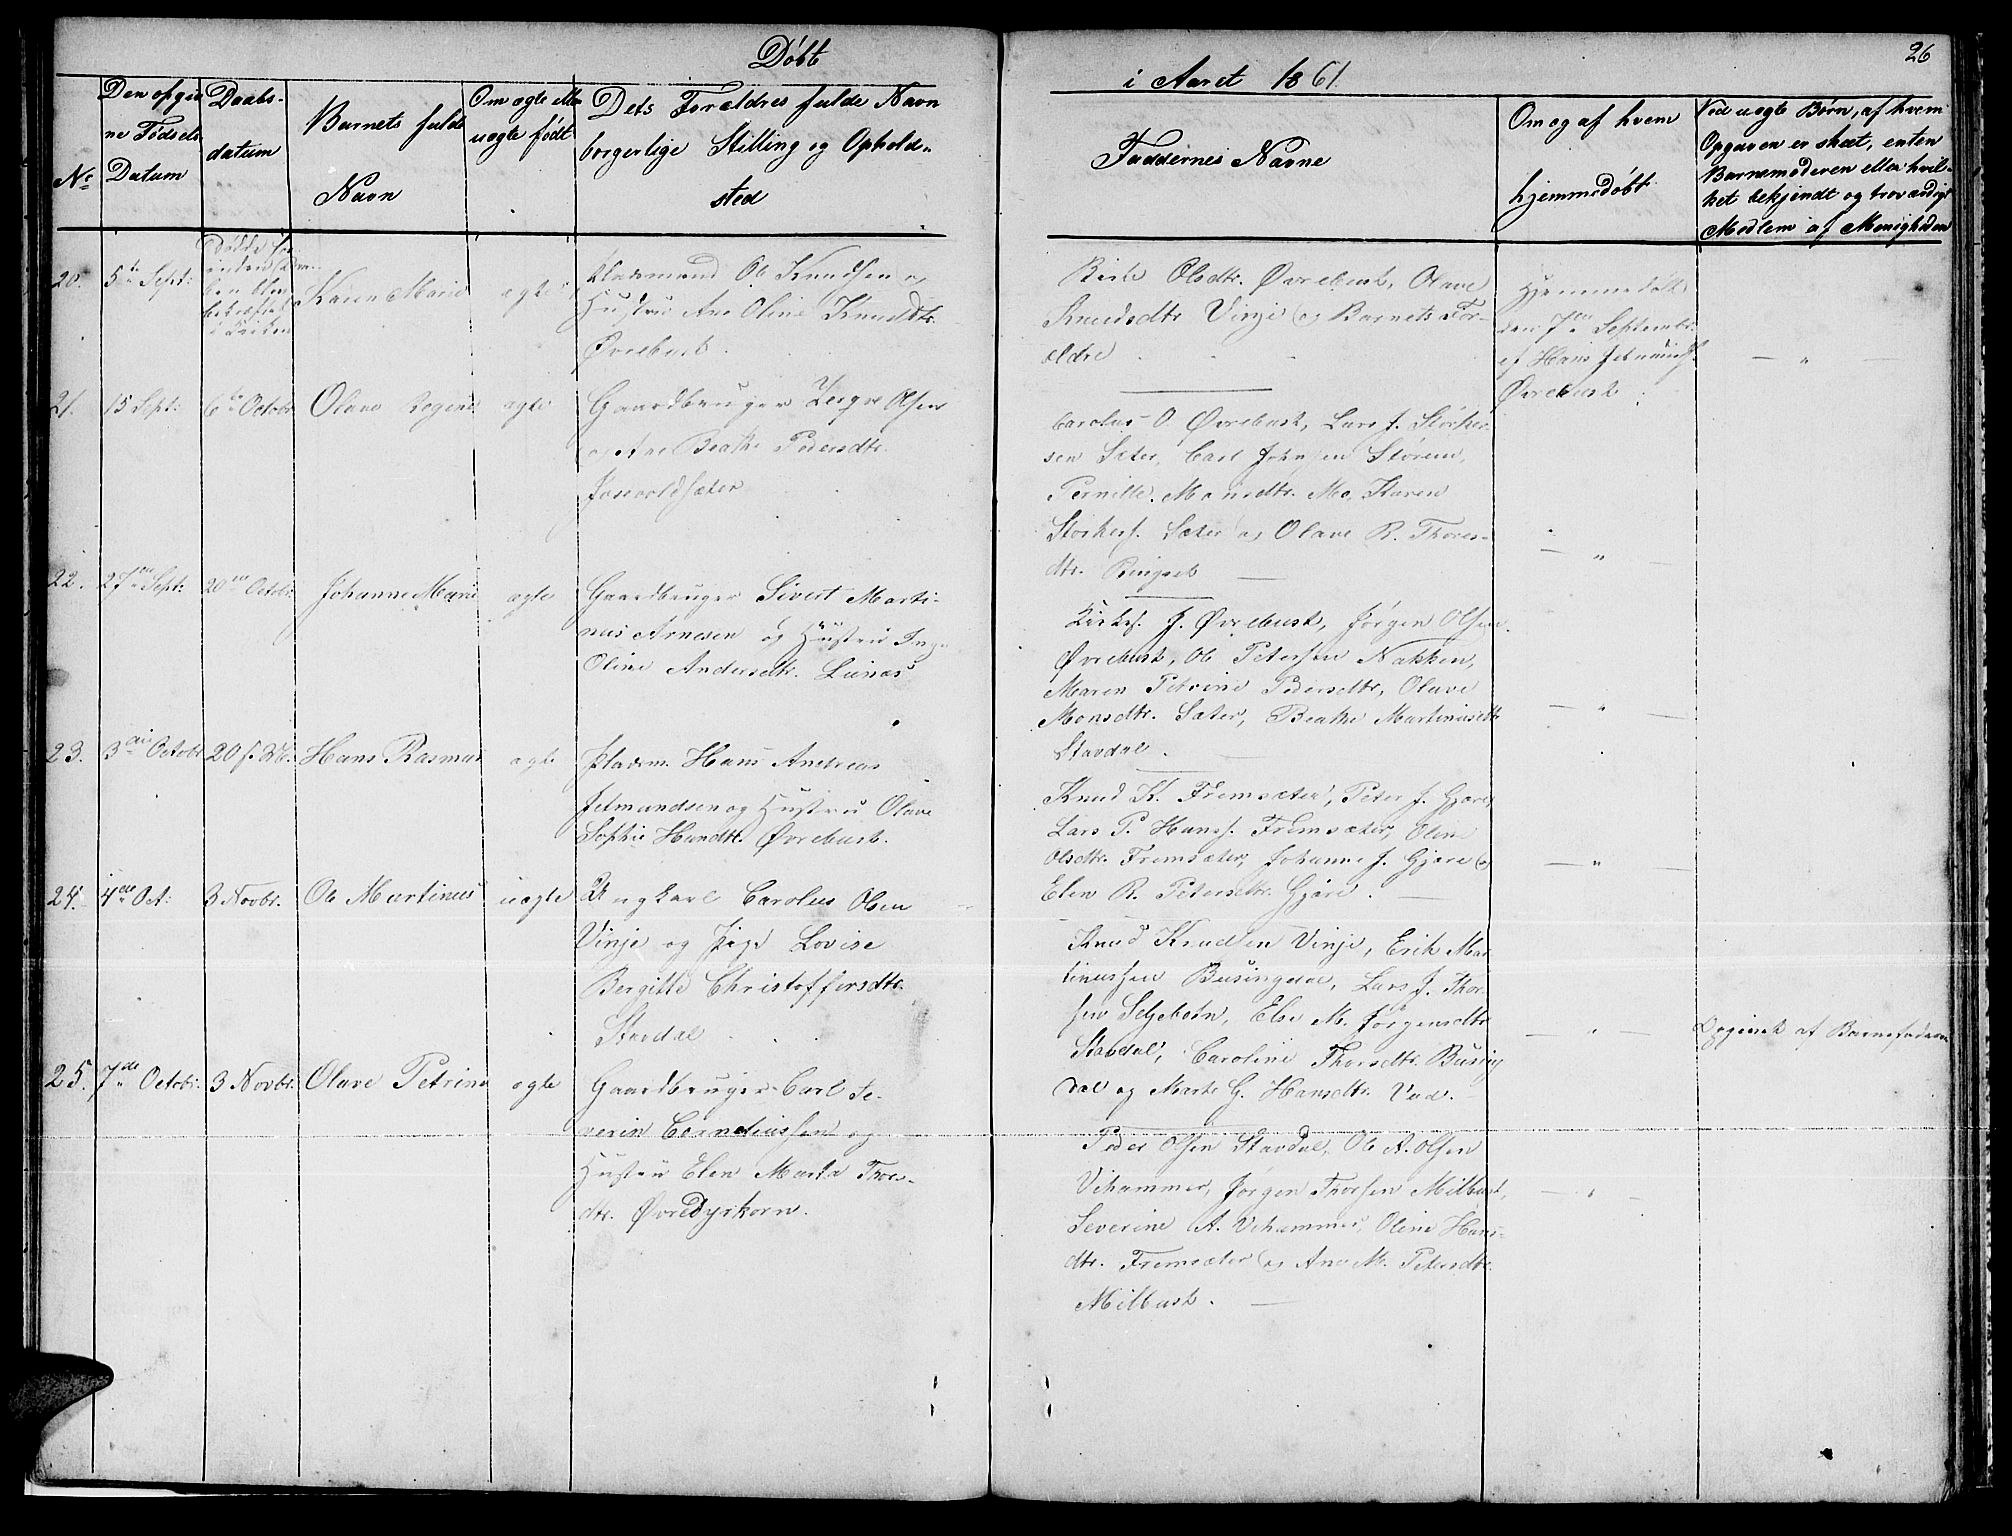 Døbt
i Aaret 1861.
26
No
Den opgiv
ne Fødsels
Datum
Daabs-
datum
Barnets fulde
Navn
Om ægte eller
uægte født
Dets Forældres fulde Navn
borgerlige Stilling og Ophold-
sted
Faddernes Navne
Om og af hvem
hjemmedøbt
Ved uægte Børn, af hvem
Opgaven er skeet, enten
Barnemoderen eller hvil-
ket bekjendt og troværdigt
Medlem af Menigheden
20.
5te Sept:
Døde for
inden
i Kirken
Karen Marie
ægte
Pladsmand Ole Knudsen og
Hustru Ane Oline Knudsdtr.
Øvrebust.
Olsdtr. Øvrebust, Olave
Knudsdtr Vinje og Barnets For-
ældre
Hjemmedøbt
den 7de Septembr.
af Hans Jetmunds.
Øvrebust.
21.
15 Sept:
6te Octobr
Olave Regine
ægte
Gaardbruger Olsen
og Ane Beathe Pedersdtr.
Carolus O. Øvrebust, Lars J. Storker
sen Sæter, Carl Johnsen Størem,
Pernille Monsdtr. Mo, Karen
Storkers. Sæter og Olave R. Thores-
dtr. Ringset
— „
22.
27de Sept:
20de Octobr.
Johanne Marie
ægte
Gaardbruger Sivert Marti-
nus Arnesen og Hustru Inge
Oline Andersdtr. Lianæs
J. Øvrebust, Jørgen Olsen
Øvrebust, Ole Petersen Nakken,
Maren Petrine Pedersdtr, Olave
Monsdtr. Sæter, Beathe Martinusdtr
Stavdal.
— „ —
23.
3die Octobr
20 s. M.
Hans Rasmus
ægte
Pladsm. Hans Andreas
Jetmundsen og Hustru Olave
Sophie Øvrebust.
Knud K. Fremsæter, Peter J. Gjære,
Lars P. Hanss. Fremsæter, Oline
Olsdtr. Fremsæter, Johanne J. Gjære og
Elen R. Petersdtr. Gjære. —
— „
24.
4de Oct:
3 Novbr.
Ole Martinus
uægte
Ungkarl Carolus Olsen
Vinje og Pige Lovise
Bergitte Christoffersdtr.
Stavdal
Knud Knudsen Vinje, Erik Mar
tinussen Busingdal, Lars J. Thor-
sen Seljebotn, Else M. Jørgensdtr
Stavdal, Caroline Thorsdtr. Busing
dal og Marte G. Hansdtr. Vad.
— „ —
Opgivet af Barnefaderen
25.
7de Octobr.
3 Novbr.
Olave Petrine
ægte
Gaardbruger Carl Se-
verin Corneliussen og
Hustru Elen Marta Thors-
dtr. Øvredyrkorn.
Peder Olsen Stavdal, Ole A. Olsen
Vihammer, Jørgen Thorsen Milbust,
Severine A. Vihammer, Oline Hans-
dtr. Fremsæter og Ane M. Petersdtr.
Milbust. —
— „ —